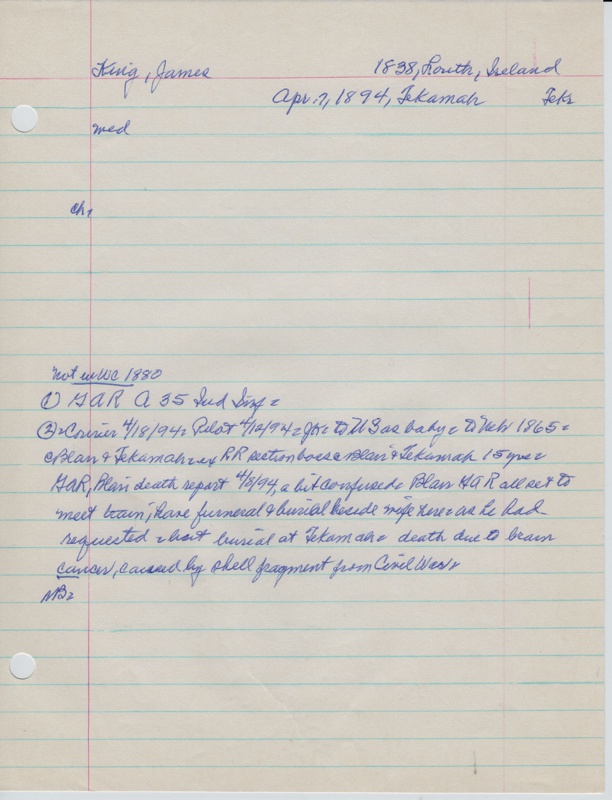 King, James 1838, Louth, Ireland
Apr. 7, 1894, Tekamah Tek
med
ch,
not in WC 1880
① GAR A 35 Ind Inf =
② = Courier 4/18/94 = Pilot 4/12/94 = to US as baby = to Neb 1865 =
Blair & Tekamah = ex RR section boss = Blair & Tekamah 15 yrs =
GAR, Blair death report 4/8/94, a bit confused = Blair GAR all set to
meet train, have funeral & burial beside wife here = as he had
requested = but burial at Tekamah = death due to brain
cancer, caused by shell fragment from Civil War =
NB =